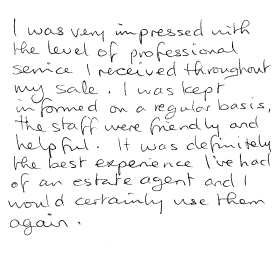 I was very impressed with
the level of professional
service I received throughout
my sale. I was kept
informed on a regular basis,
the staff were friendly and
helpful. It was definitely
the best experience I've had
of an estate agent and I
would certainly use them
again.